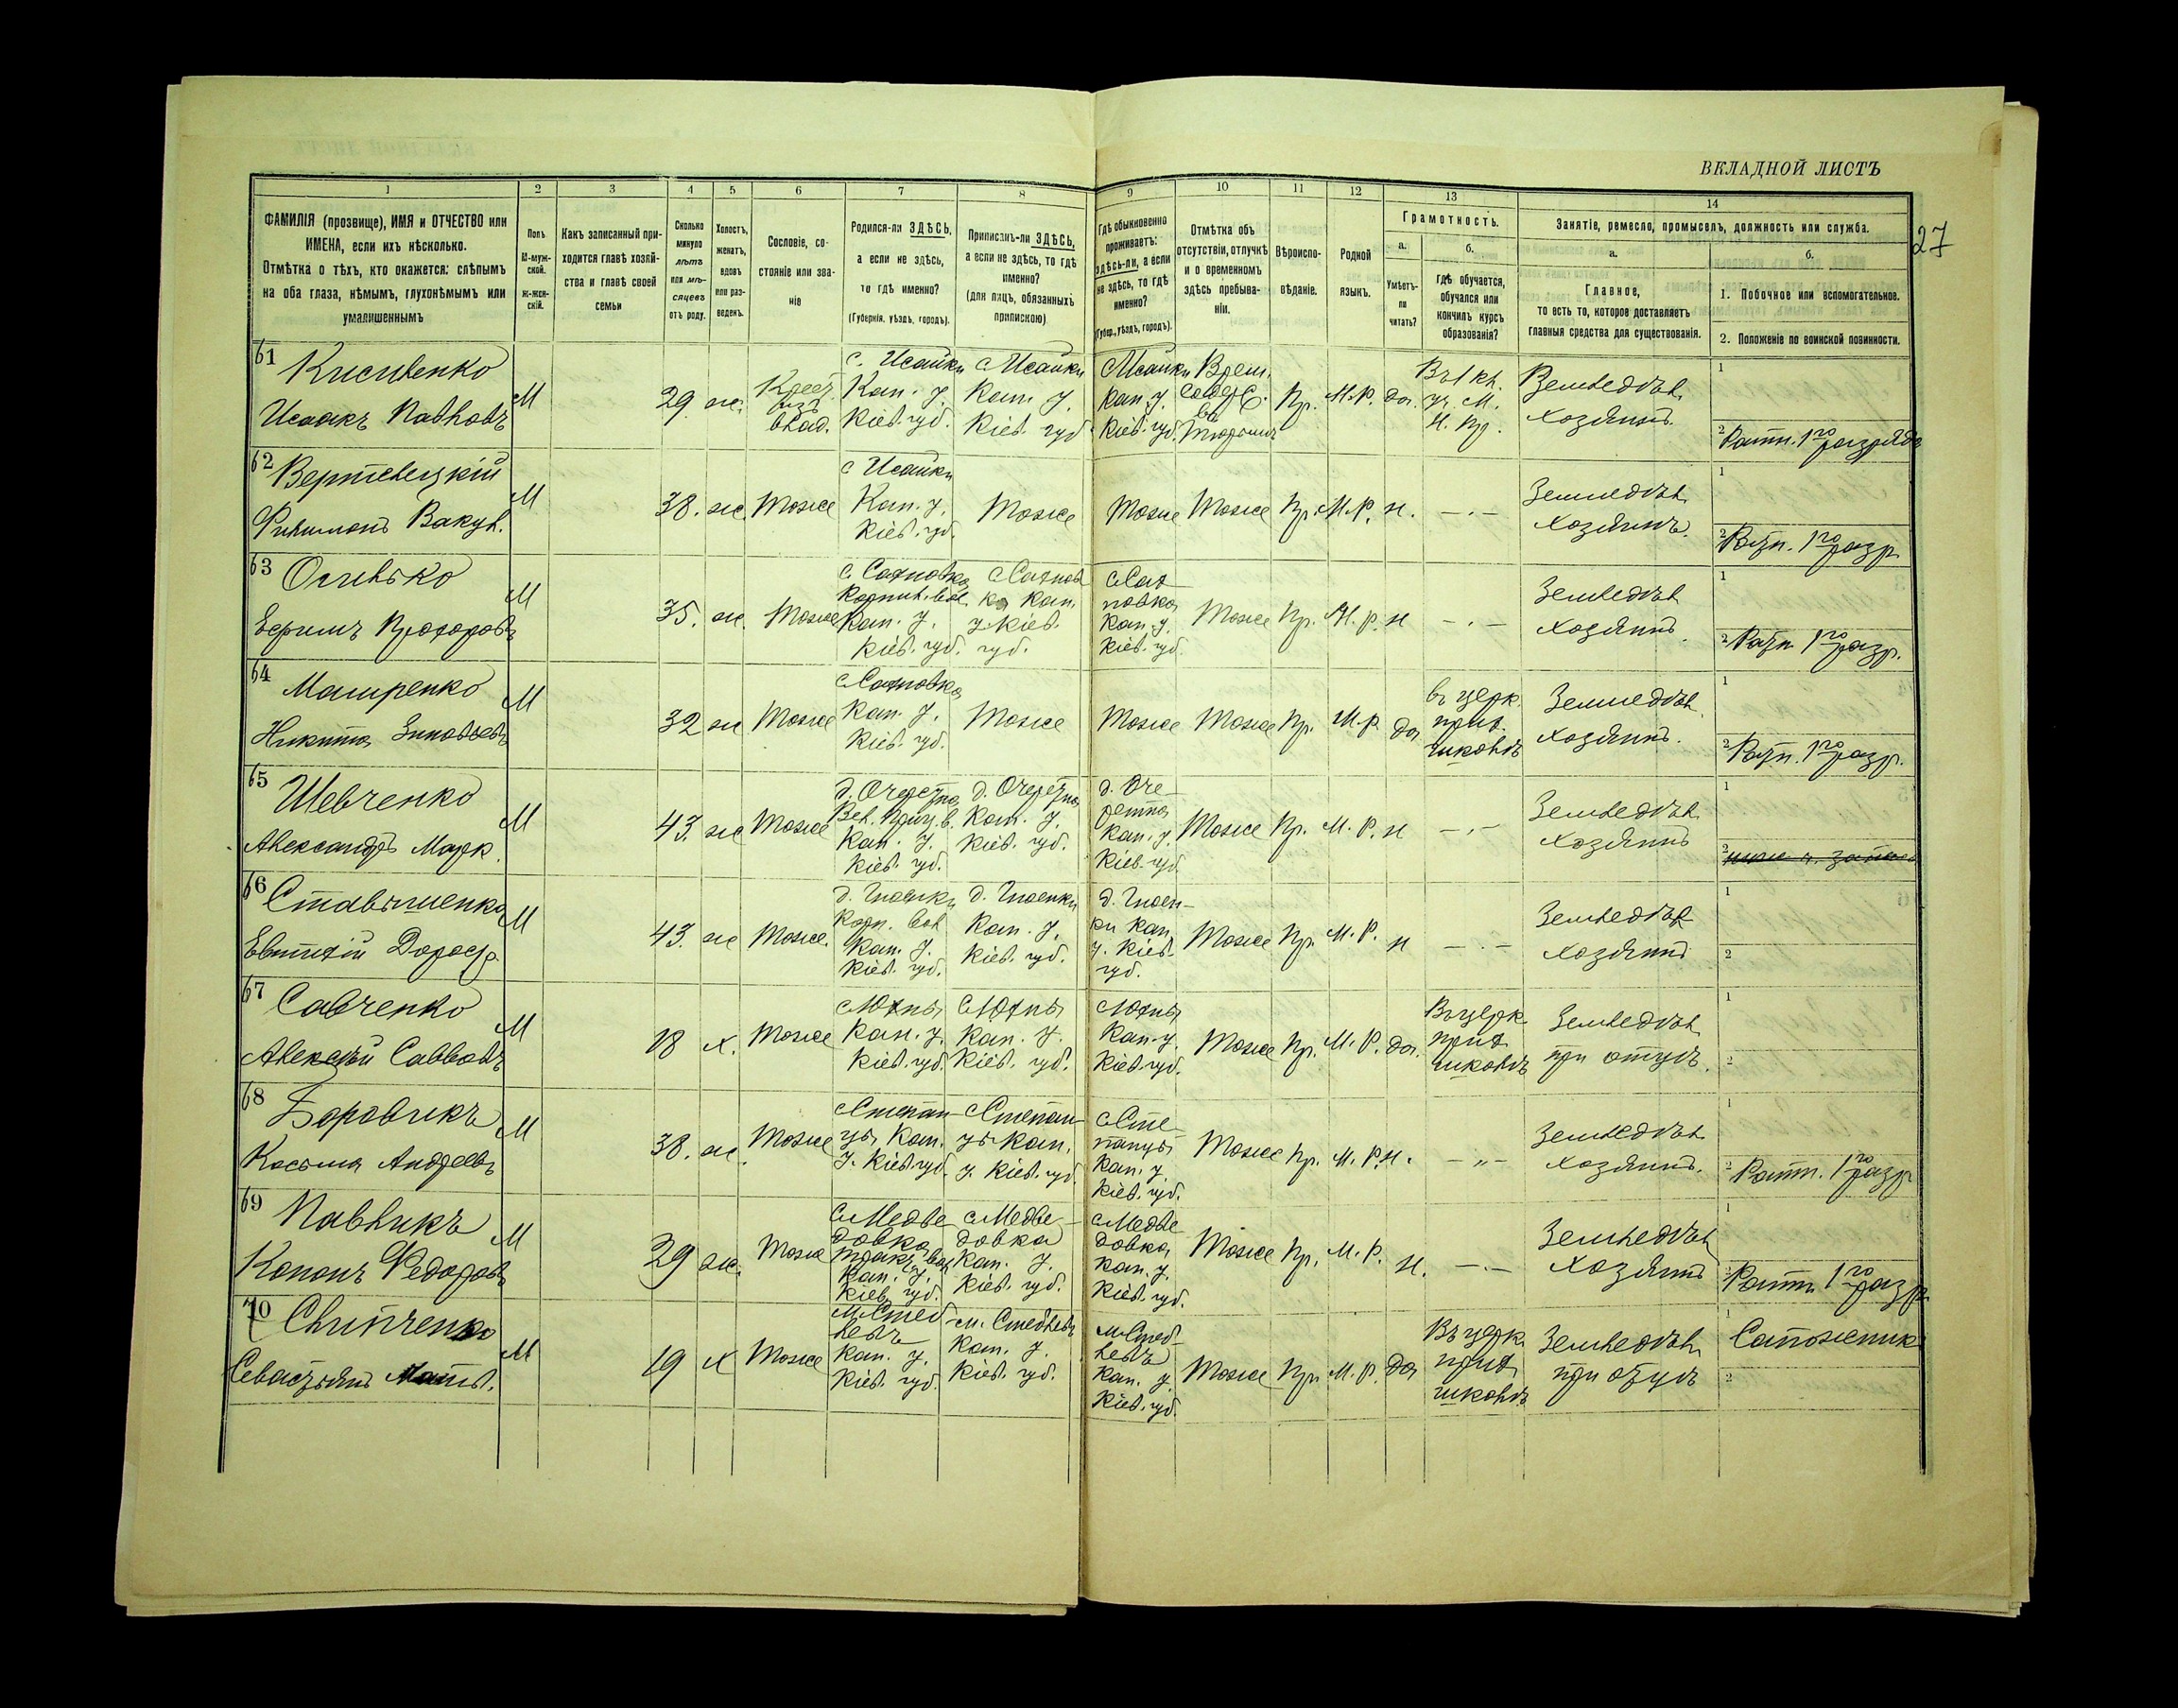 ВКЛАДНОЙ ЛИСТЪ
27
1 2 3 4 5 6 7 8 9 10 11 12 13 14
ФАМИЛІЯ (прозвище), ИМЯ и ОТЧЕСТВО или
ИМЕНА, если ихъ нѣсколько.
Отмѣтка о тѣхъ, кто окажется: слѣпымъ
на оба глаза, нѣмымъ, глухонѣмымъ или
умалишеннымъ
Полъ
М-муж-
ской.
ж-жен-
скій.
Какъ записанный при-
ходится главѣ хозяй-
ства и главѣ своей
семьи
Сколько
минуло
лѣтъ
или мѣ-
сяцевъ
отъ роду.
Холостъ,
женатъ,
вдовъ
или раз-
веденъ.
Сословіе, со-
стояніе или зва-
ніе
Родился-ли ЗДѢСЬ,
а если не здѣсь,
то гдѣ именно?
(Губернія, уѣздъ, городъ).
Приписанъ-ли ЗДѢСЬ,
а если не здѣсь, то гдѣ
именно?
(для лицъ, обязанныхъ
припискою)
Гдѣ обыкновенно
проживаетъ:
здѣсь-ли, а если
не здѣсь, то гдѣ
именно?
(Губер., уѣздъ, городъ).
Отмѣтка объ
отсутствіи, отлучкѣ
и о временномъ
здѣсь пребыва-
ніи.
Вѣроиспо-
вѣданіе.
Родной
языкъ.
Грамотность.
а.
Умѣетъ-
ли
читать?
б.
гдѣ обучается,
обучался или
кончилъ курсъ
образованія?
Занятіе, ремесло, промыселъ, должность или служба.
а.
Главное,
то есть то, которое доставляетъ
главныя средства для существованія.
б.
1. Побочное или вспомогательное.
2. Положеніе по воинской повинности.
61 Кисиленко
Исаакъ Павловъ
М
29
ж.
Крест.
изъ
влад.
с. Исайки
Кан. у.
Кіев. губ.
с Исайки
Кан. у.
Кіев. губ
с Исайки
Кан. у.
Кіев. губ.
Врем.
содерж.
въ
тюрьмѣ
Пр.
М.Р.
да.
Въ 1 кл.
уч. М.
Н. Пр.
Земледѣл.
хозяинъ.
1
2 Ратн. 1го разряда
62 Вертелецкій
Филимонъ Вакул.
М
38.
ж.
Тоже
с Исайки
Кан. у.
Кіев. губ.
Тоже
Тоже
Тоже
Пр.
М.Р.
н.
— . —
Земледѣл.
хозяинъ.
1
2 Ратн. 1го разр
63
Ефимъ Прохоровъ
М
35.
ж.
Тоже
с. Сахновка
Корнил. вол.
Кан. у.
Кіев. губ.
с Сахнов
ка Кан.
у Кіев.
губ.
с Сах
новка
Кан. у.
Кіев. губ
Тоже
Пр.
М.р.
н
— . —
Земледѣл
хозяинъ.
1
2 Ратн 1го разр.
64
Никита Зиновьевъ
М
32
ж
Тоже
с Сахновка
Кан. у.
Кіев. губ.
Тоже
Тоже
Тоже
Пр.
М.р.
да
въ церк.
прих.
школѣ
Земледѣл.
хозяинъ.
1
2 Ратн. 1го разр.
65 Шевченко
Александръ Марк.
М
43.
ж
Тоже
д. Очеретня
Кан. у.
Кіев. губ.
д. Очеретня
Кан. у.
Кіев. губ.
д. Оче
ретня
Кан. у.
Кіев. губ
Тоже
Пр.
М.Р.
н
— . —
Земледѣл.
хозяинъ
1
2
66 Ставышенко
Евтихій Дороф.
М
43.
ж
Тоже.
д. Гноенки
Корн. вол
Кан. у.
Кіев. губ.
д. Гноенки
Кан. у.
Кіев. губ.
д. Гноен-
ки Кан
у. Кіев
губ.
Тоже
Пр.
М.Р.
н
— . —
Земледѣл
хозяинъ
1
2
67 Савченко
Алексѣй Саввовъ
М
18
х.
Тоже
с Юхны
Кан. у.
Кіев. губ.
с Юхны
Кан. у.
Кіев. губ.
с Юхны
Кан. у.
Кіев. губ.
Тоже
Пр.
М.Р.
да.
Въ церк
прих
школѣ
Земледѣл
при отцѣ.
1
2
68 Боровикъ
Косьма Андреевъ
М
38.
ж.
Тоже
с Степан-
цы Кан.
у. Кіев. губ.
с Степан-
цы Кан.
у. Кіев. губ.
с Сте-
панцы
Кан. у.
Кіев. губ.
Тоже
Пр.
М.Р.
н.
— „ —
Земледѣл.
хозяинъ.
1
2 Ратн. 1го разр
69 Павликъ
Кононъ Федоровъ
М
39
ж.
Тоже
с Медве
довка
Кан. у.
Кіев. губ.
с Медве-
довка
Кан. у.
Кіев. губ.
с Медве
довка
Кан. у.
Кіев. губ.
Тоже
Пр.
М.Р.
н.
— . —
Земледѣл
хозяинъ
1
2 Ратн 1го разр
70 Слипченко
Севастьянъ Матв.
М
19
х
Тоже
м Стеб
левъ
Кан. у.
Кіев. губ.
м. Стеблевъ
Кан. у.
Кіев. губ.
м Стеб
левъ
Кан. у.
Кіев. губ.
Тоже
Пр.
М.Р.
да
Въ церк
прих
школѣ
Земледѣл
при отцѣ
1 Сапожник
2